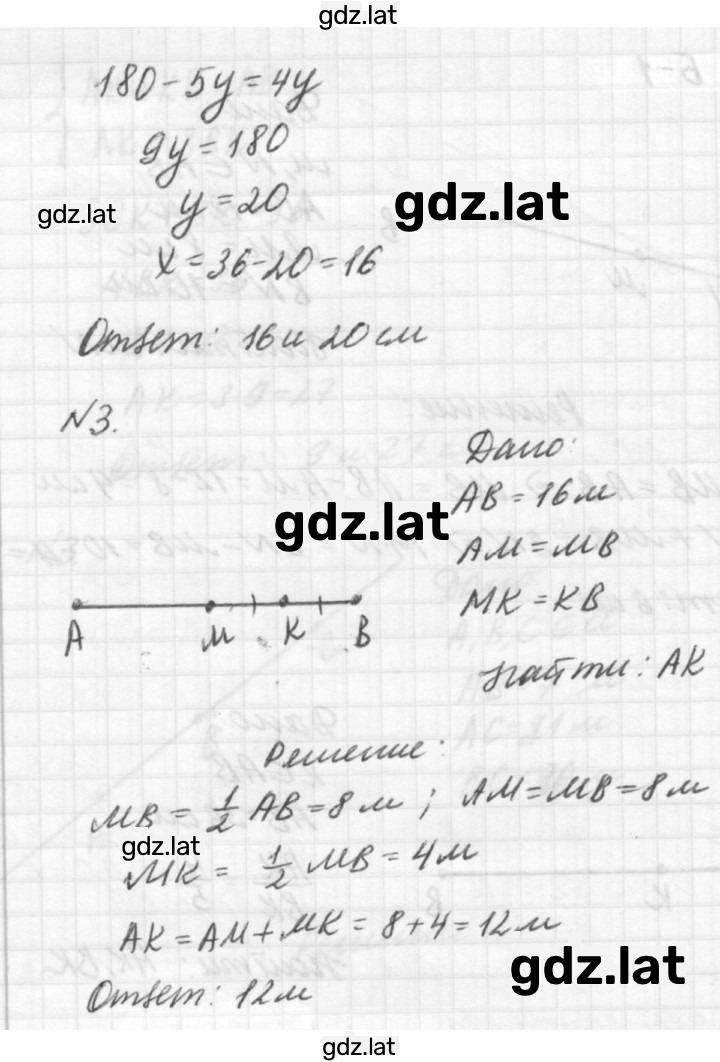 gdz.lat
180-5y=4y
9y=180
y=20
gdz.lat
gdz.lat
x=36-20=16
Ответ: 16 и 20 см
N3.
Дано:
AB=16м
gdz.lat
AM=MB
MK=KB
A M K B
Найти: AK
Решение:
MB= 1/2 AB=8м; AM=MB=8м
gdz.lat
MK= 1/2 MB=4м
AK=AM+MK=8+4=12м
gdz.lat
Ответ: 12м
gdz.lat